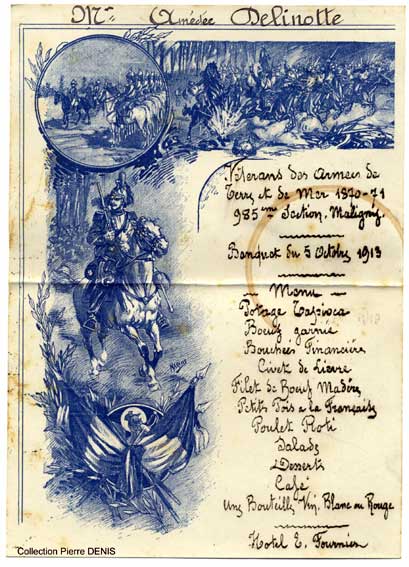 Mr Amédée Delinotte
Vétérans des Armées de
Terre et de Mer 1870-71
985eme Section, Maligny
Banquet du 5 Octobre 1913
Menu
Potage Tapioca
Boeuf garnie
Bouchées Financière
Civet de Lièvre
Filet de Boeuf Madère
Petits Pois a la Française
Poulet Roti
Salade
Desserts
Café
Une Bouteille Vin, Blanc ou Rouge
Hotel E. Fournier
Collection Pierre DENIS